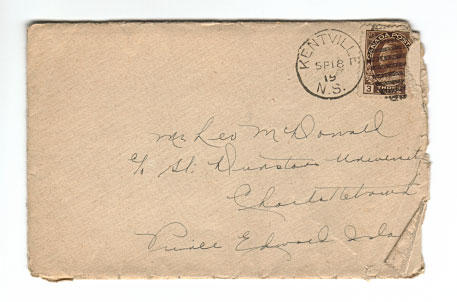 KENTVILLE
SP 18
19
N.S.
CANADA POSTAGE
3 THREE
Mr Leo McDonall
c/o St. Dunstans University
Charlottetown
Prince Edward Isla